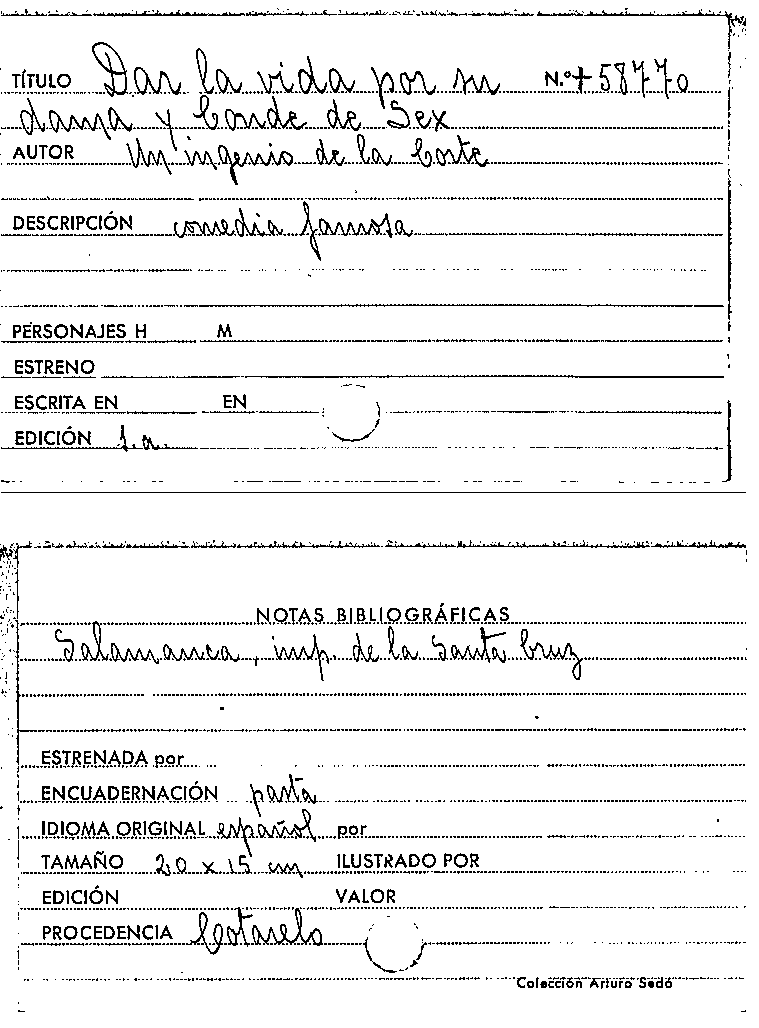 TÍTULO Dar la vida por su N.º + 58770
dama y Conde de Sex
AUTOR Un ingenio de la Corte
DESCRIPCIÓN comedia famosa
PERSONAJES H M
ESTRENO
ESCRITA EN EN
EDICIÓN s.a.
NOTAS BIBLIOGRÁFICAS
Salamanca, imp. de la Santa Cruz
ESTRENADA por
ENCUADERNACIÓN pasta
IDIOMA ORIGINAL español por
TAMAÑO 20 x 15 cm ILUSTRADO POR
EDICIÓN VALOR
PROCEDENCIA Cotarelo
Colección Arturo Sedó